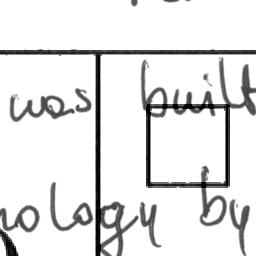 was built
nology by